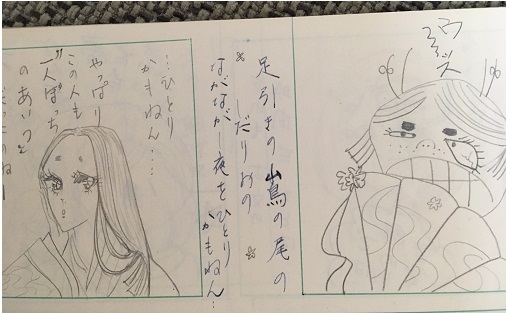 足引きの山鳥の尾の
しだりおの
ながながし夜をひとり
かもねん…
…ひとり
かもねん…
やっぱり
この人も
"一人ぼっち
のあいつ"